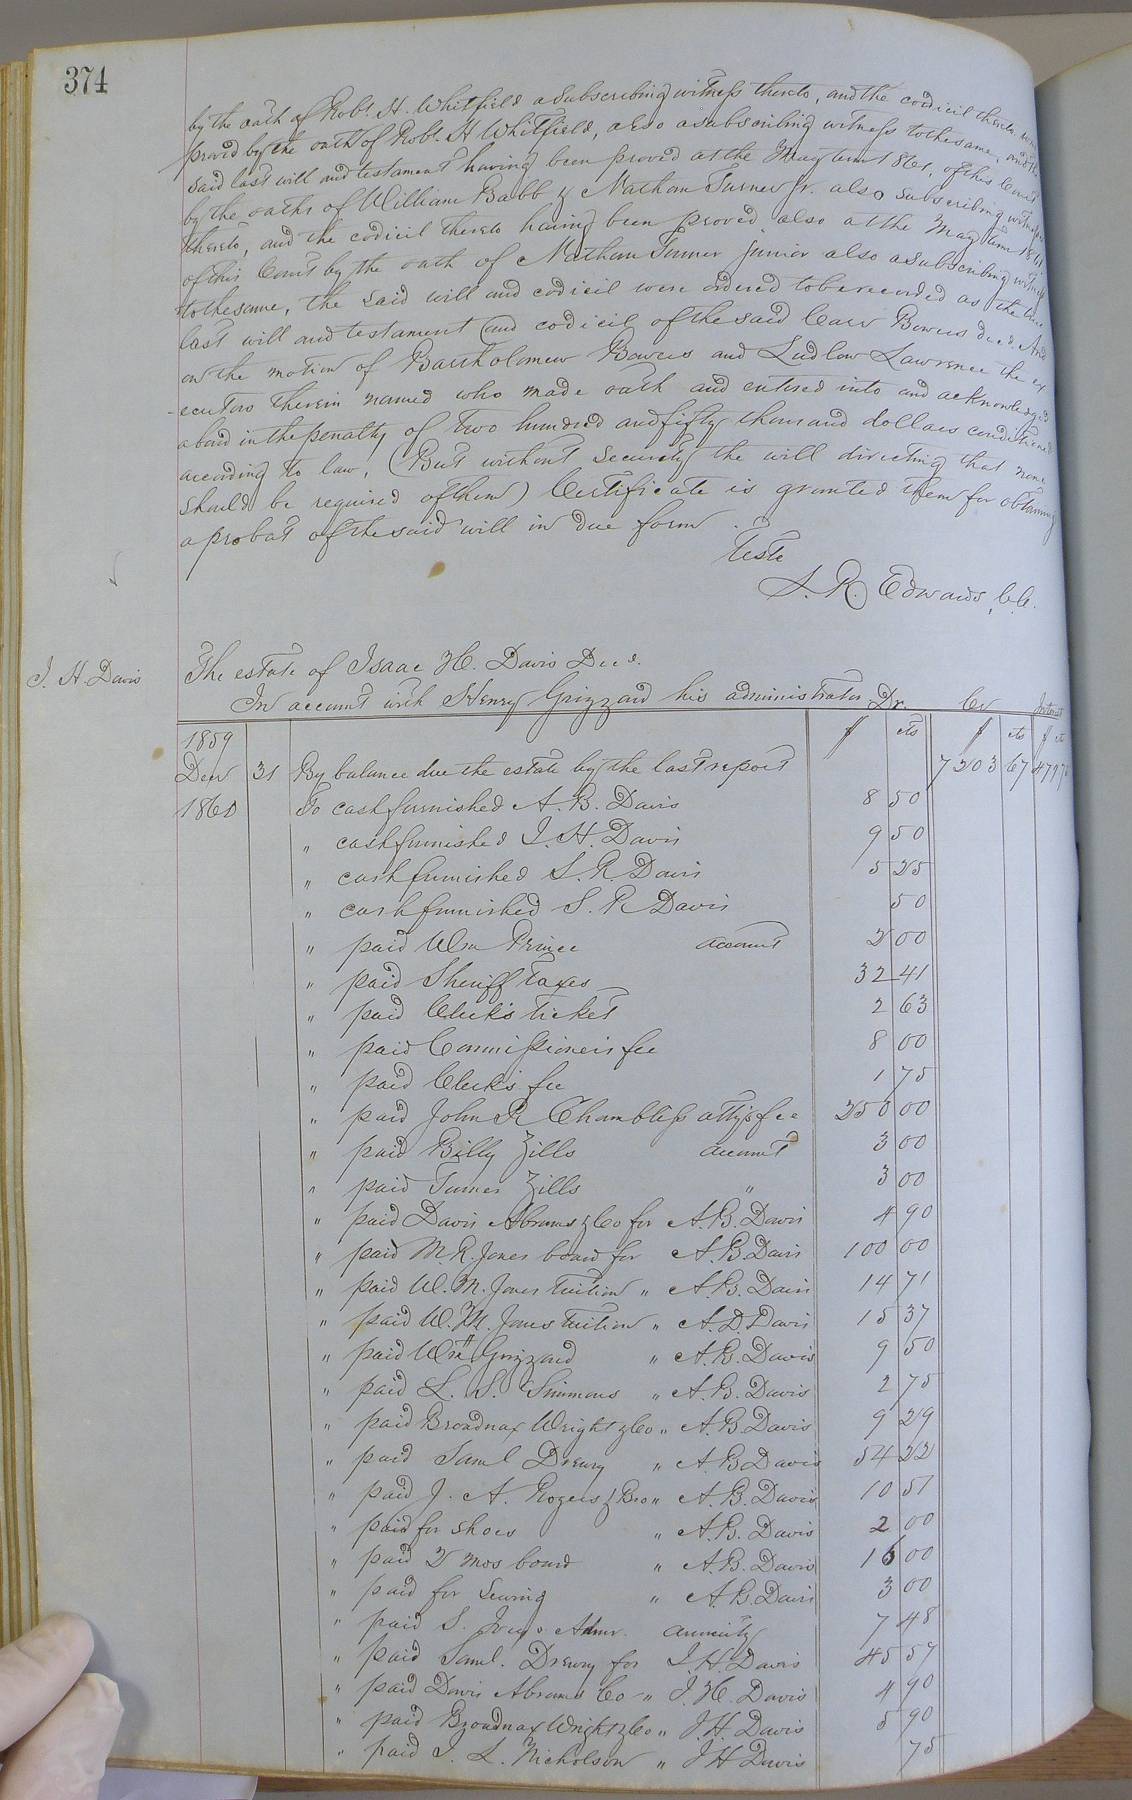 374
by the oath of Robt. H. Whitfield a Subscribing witness thereto, and the codicil thereto
proved by the oath of Robt. H Whitfield, also a subscribing witness to the same, and the
said last will and testament having been proved at the May term 1861, of this Court
by the oaths of William Babb & Nathan Turner Jr. also subscribing witnesses
thereto, and the codicil thereto having been proved also at the May term 1861
of this Court by the oath of Nathan Turner junior also a subscribing witness
to the same, the said will and codicil were ordered to be recorded as the true
last will and testament and codicil of the said Carr Bowers decd. And
on the motion of Bartholomew Bowers and Ludlow Lawrence the ex
-ecutors therein named who made oath and entered into and acknowledged
a bond in the penalty of two hundred and fifty thousand dollars conditioned
according to law, (But without security the will directing that none
should be required of them) Certificate is granted them for obtaining
a probat of the said will in due form.
Teste
L. R. Edwards, C.C.
I. H. Davis
The estate of Isaac H. Davis Decd.
In account with Henry Grizzard his administrator Dr. Cr Interest
1859 $ cts $ cts $ ct
Decr 31 By balance due the estate by the last report 7203 67
1860 To cash furnished A. B. Davis 8 50
" cash furnished I. H. Davis 9 50
" cash furnished S. R. Davis 5 25
" cash furnished S. R Davis 50
" paid Wm Prince account 2 00
" paid Sheriff taxes 32 41
" paid Clerk's ticket 2 63
" paid Commissioner's fee 8 00
" paid Clerk's fee 1 75
" paid John R Chambless atty's fee 250 00
" paid Billy Zills account 3 00
" paid Turner Zills " 3 00
" paid Davis Abrams & Co for A. B. Davis 4 90
" paid M. R. Jones board for A. B. Davis 100 00
" paid W. M. Jones tuition " A. B. Davis 14 71
" paid W. M. Jones tuition " A. D. Davis 15 37
" paid Wm Grizzard " A. B. Davis 9 50
" paid L. S. Simmons " A. B. Davis 2 75
" paid Broadnax Wright & Co " A. B. Davis 9 29
" paid Saml Drewry " A B Davis 54 22
" paid J. A. Rogers & Bro " A. B. Davis 10 51
" paid for shoes " A. B. Davis 2 00
" paid 2 mos board " A. B. Davis 16 00
" paid for sewing " A. B. Davis 3 00
" paid S. Admr. annuity 7 48
" paid Saml. Drewry for I. H. Davis 45 57
" paid Davis Abrams Co " I. H. Davis 4 90
" paid Broadnax Wright & Co " I. H. Davis 5 90
" paid I. L. Nicholson " I H Davis 75